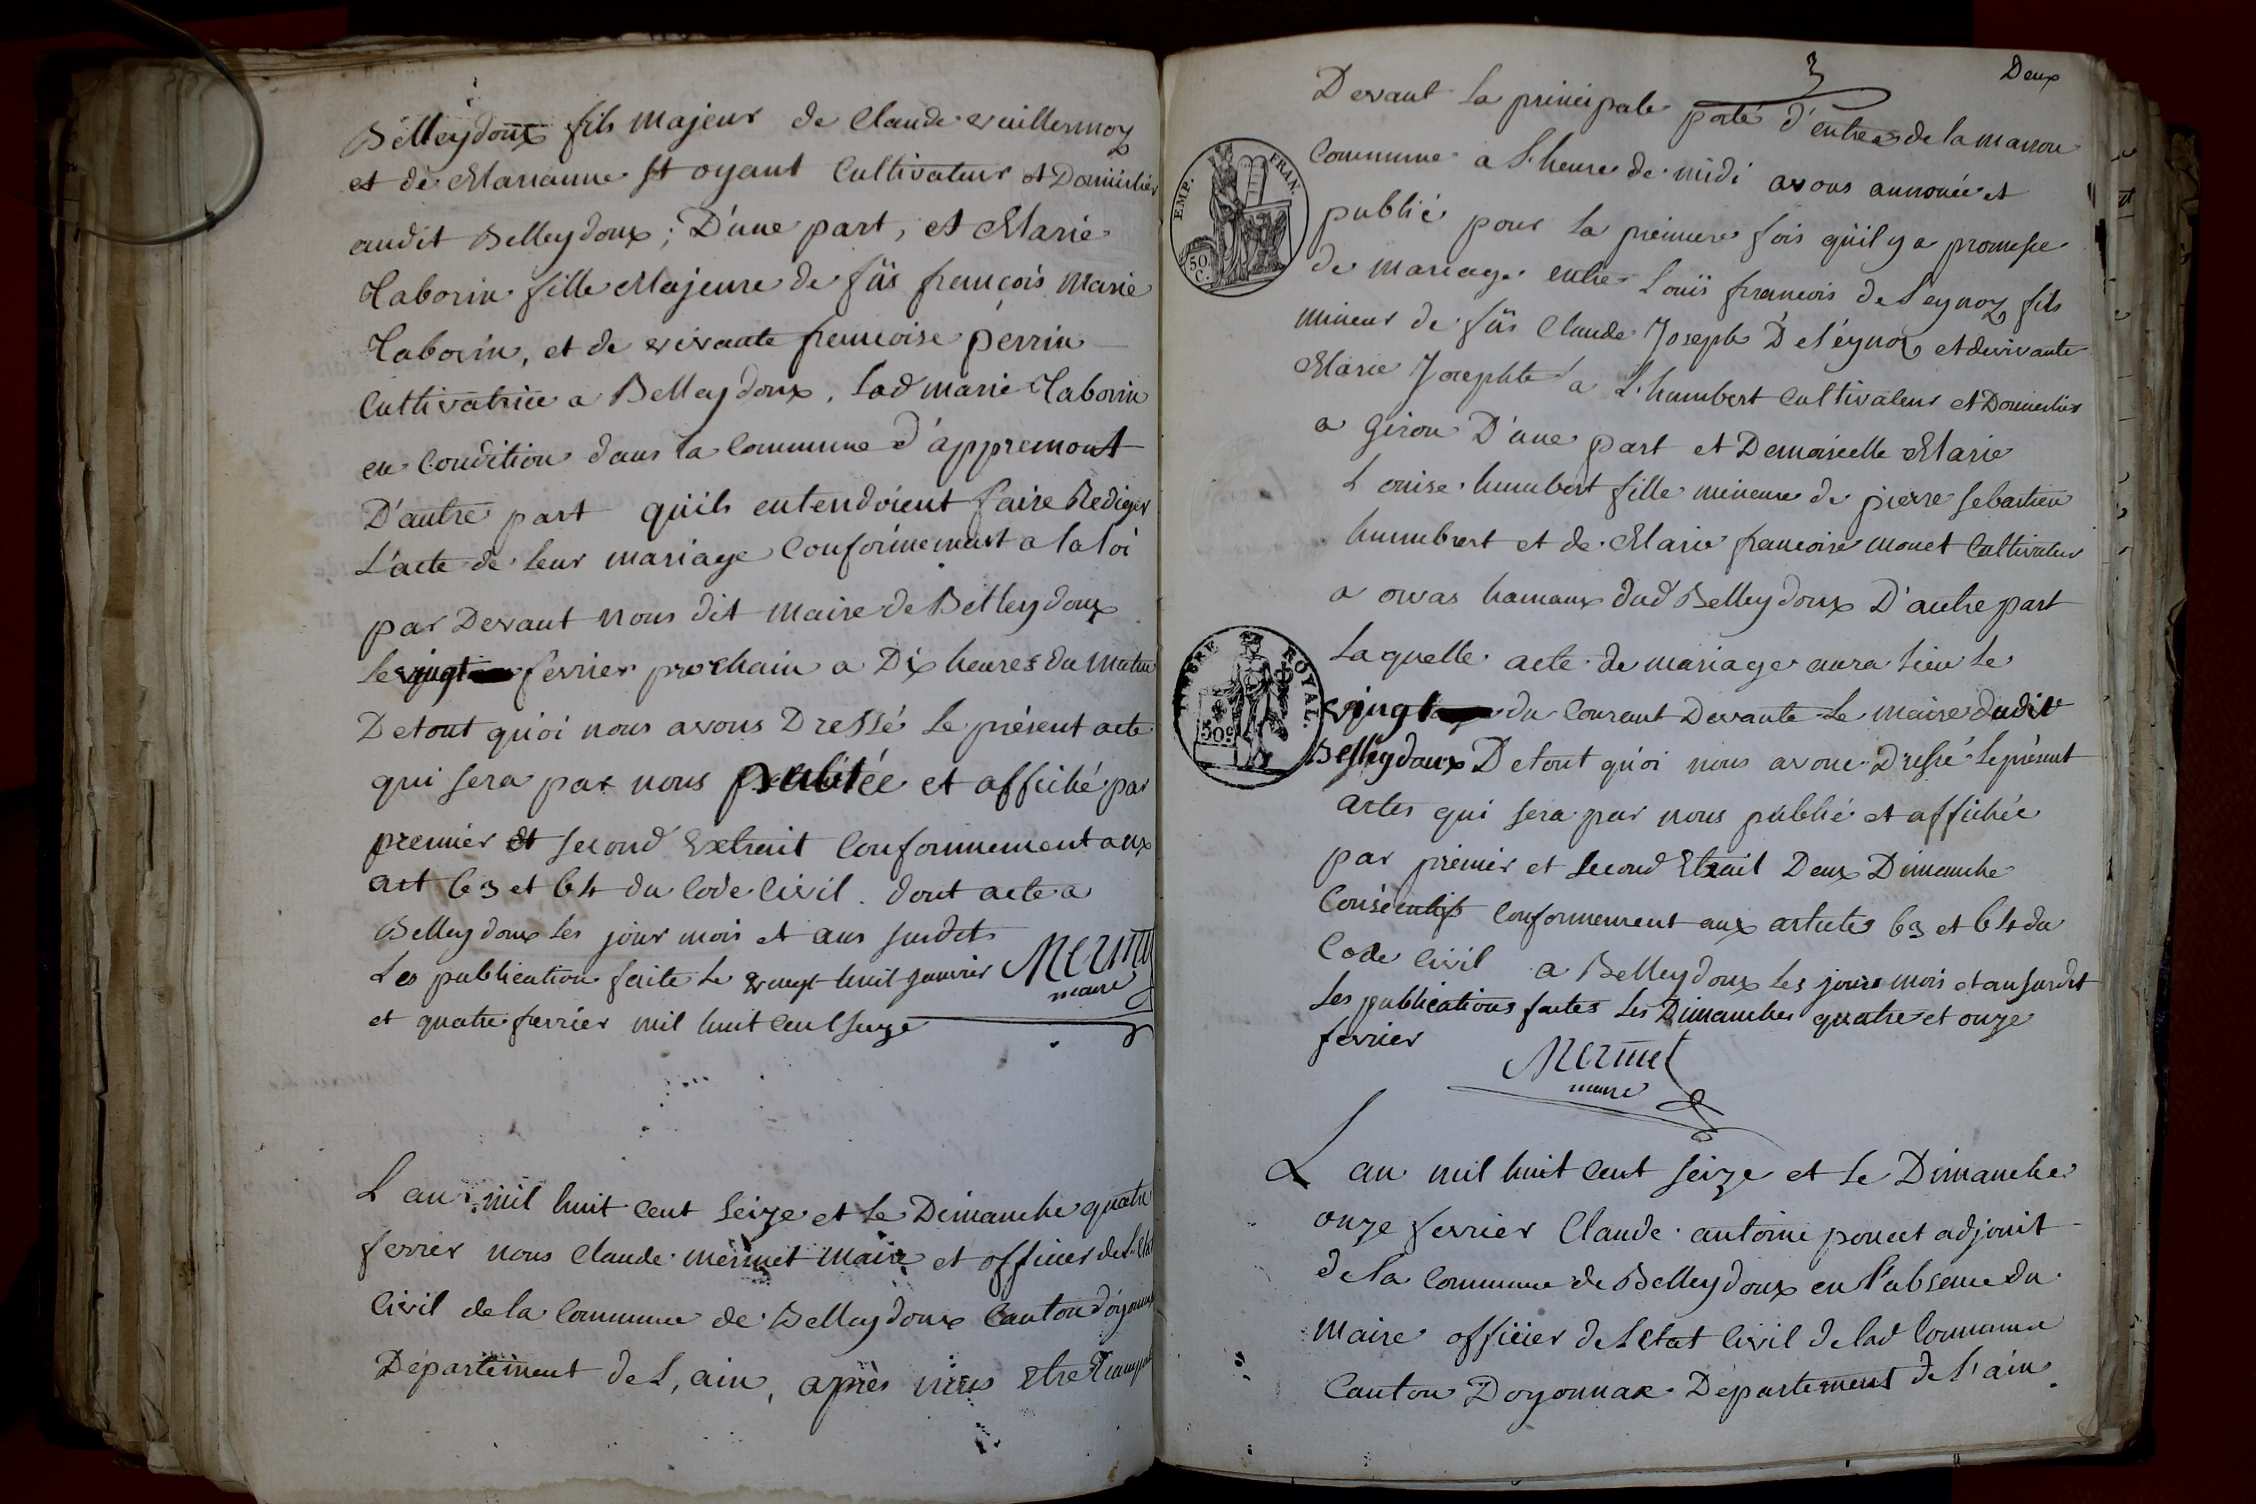 Belleydoux fils majeur de Claude vuillermoz
et de Marianne st oyant Cultivateur et Domicilié
audit Belleydoux; D'une part, et Marie
Taborin fille Majeure de füs françois Marie
Taborin, et de vivante francoise perrin
Cultivatrice a Belleydoux. Lad marie Taborin
en Condition dans la Commune d'appremont
D'autre part quils entendoient faire Rediger
L'acte de leur mariage Conformement a la loi
par Devant nous dit maire de Belleydoux
le vingt fevrier prochain a Dix heures du Matin
De tout quoi nous avons Dressé le présent acte
qui sera par nous et affiché par
premier et second Extrait Conformement aux
art 63 et 64 du Code Civil. dont acte a
Belleydoux les jour mois et ans susdits
Les publication faite le vingt huit janvier
et quatre fevrier mil huit Cent seize
Mermet
maire
L an mil huit cent seize et le Dimanche quatre
fevrier nous Claude mermet Maire et officier de l'Etat
Civil de la Commune de Belleydoux Canton d'oyonnax
Département de L, ain, après nous etre Transporté
3
Deux
Devant la principale porte d'entrée de la maison
Commune a L'heure de midi avons annoncé et
publié pour la premiere fois quil y a promesse
de mariage entre Louis francois deLeynoz fils
mineur de füs Claude Joseph DeLéynoz et de vivante
Marie Josephte a L'humbert Cultivateur et Domicilié
a Giron D'une part et Demoiselle Marie
Louise humbert fille mineure de pierre Sebastien
humbert et de Marie francoise monet Cultivateur
a orvas hamaux dud Belleydoux D'autre part
Laquelle acte de mariage aura lieu le
vingt du Courant Devante le maire dudit
Belleydoux De tout quoi nous avone Dressé le présent
actes qui sera par nous publié et affichée
par premier et second Etrait Deux Dimanche
Consécutifs Conformement aux articles 63 et 64 du
Code Civil a Belleydoux les jours mois et an susdit
Les publications faites les Dimanches quatre et onze
fevrier
Mermet
maire
EMP. FRAN.
50 C.
TIMBRE ROYAL.
50C
L an mil huit cent seize et le Dimanche
onze fevrier Claude antoine poncet adjoint
de la Commune de Belleydoux en l'absence du
Maire officier de l etat Civil de lad Commune
Canton Doyonnax Département de L'ain